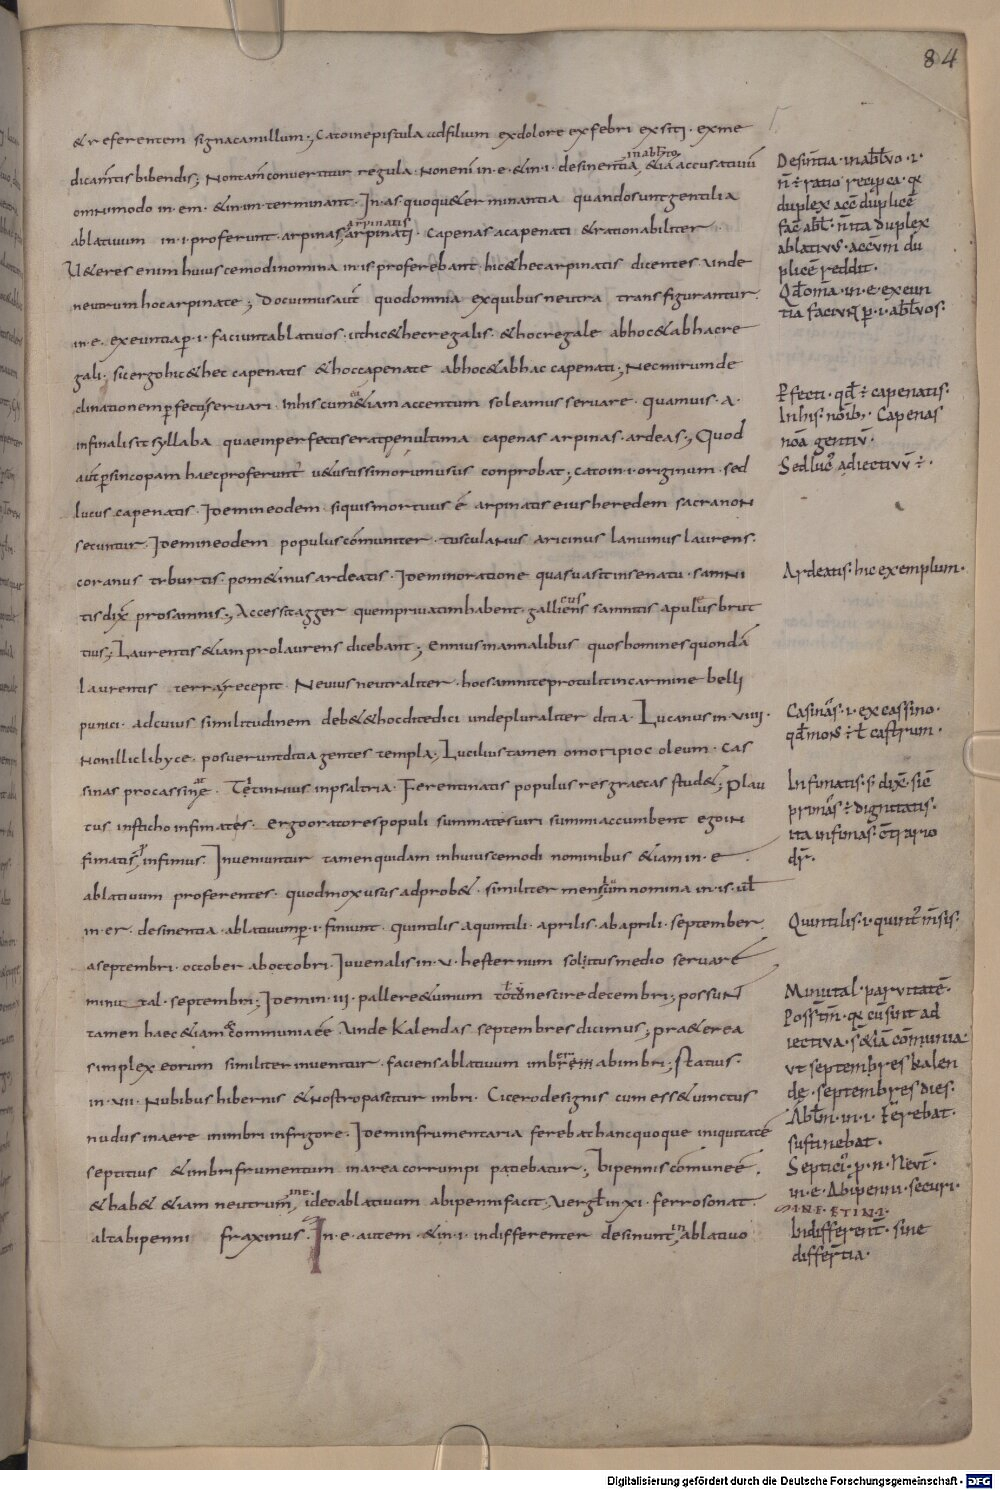 84
& referentem signa camillum ; Cato in epistula ad filium ex dolore ex febri ex siti · ex me
dicamtis bibendis ; Non tam convertitur regula · Non enim in · e · & in · i · desinentia in abltō &iā accusativū
omnimodo in · em · & in · im · terminant · In · as · quoque & er minantia quando sunt gentilia
ablativum in · i · proferunt · arpinas arpinatis arpinati · capenas a capenati & rationabiliter ·
Veteres enim huiuscemodi nomina in · is · proferebant · hic & hec arpinatis dicentes unde
neutrum hoc arpinate ; Docuimus aut̄ quod omnia ex quibus neutra transfigurantur ·
in · e · exeuntia p̱ · i · faciunt ablativos · ut hic & hec regalis · & hoc regale ab hoc & ab hac re
gali · sic ergo hic & hec capenatis & hoc capenate ab hoc & ab hac capenati ; Nec mirum de
clinationem pfecti servari · In his cum &iam accentum soleamus servare · quamvis · a ·
in finali sit syllaba quae in perfectis erat penultima capenas arpinas · ardeas ; Quod
aut̄ p sincopam haec proferunt vetustissimorum usus conprobat ; cato in · i · originum · sed
lucus capenatis · Idem in eodem · siquis mortuus ē arpinatis eius heredem sacra non
secuntur · Idem in eodem populus cōmuniter · tusculanus aricinus lanuuinus laurens ·
coranus tiburtis · pometinus ardeatis · Idem in oratione qua suasit in senatu · samni
tis dix̄ pro samnis ; Accessit agger quem privatim habent · galliens cus samnitis apulus brut
tius ; Laurentis &iam pro laurens dicebant ; Ennius in annalibus quos homines quondā
laurentis terra recepit Nevius neutraliter · hoc samnite protulit in carmine belli
punici · ad cuius similitudinem deb& & hoc dite dici unde pluraliter ditia · Lucanus in · viiii ·
Non illic libyce · posuerunt ditia gentes templa ; Lucilius tamen omoripioc oleum · cas
sinas pro cassine · Tetinnius in psaltria · Ferentinatis populus res graecas stud& ; Plau
tus in sticho infimates · Ergo oratores populi summates viri summi accumbent ego in
fimatis infimus Inveniuntur tamen quidam in huiuscemodi nominibus &iam in · e ·
ablativum proferentes · quod mox usus adprob& · similiter mensium nomina in · is · vel
in · er · desinentia · ablativum p̱ · i · finiunt quintilis a quintili · aprilis · ab aprili · september
a septembri · october ab octobri · Iuvenalis in · v · hesternum solitus medio servare
minutal · septembri ; Idem in · iii · pallere & unum totonescire decembri ; possunt
tamen haec &iam communia ēē unde kalendas septembres dicimus ; praeterea
simplex eorum similiter invenitur · faciens ablativum imbrem ab imbri ; Statius ·
in · vii · Nubibus hibernis & nostro pascitur imbri · Cicero de signis cum ess& vinctus
nudus in aere in imbri in frigore · Idem in frumentaria ferebat hanc quoque iniquitatē
septitius & imbri frumentum in area corrumpi patiebatur ; bipennis cōmune ē ·
& hab& &iam neutrum in · e · ideo ablativum a bipenni facit ; Vergl̄ in xi · ferro sonat ·
alta bipenni fraxinus · In · e · autem · & in · i · indifferenter desinunt in ablativo
Desin̄tia · in abl̄vo · i ·
n̄ ē ratio recip̄ca · q̄
duplex acc̄ duplicē
fac̄ abl̄ · n̄ ita duplex
ablativus · accūm du
plicē reddit ·
Qd̄ om̄a · in · e · exeun
tia faciunt p̱ · i · abl̄vos ·
Pfecti · qd̄ ē capenatis ·
In his · noīb; · Capenas
nōa gentiū ·
Sed luc̄ adiectivū ē ·
Ardeatis · hic exemplum ·
Casinās · i · ex cassino ·
qd̄ mons ē l̄ castrum ·
Infimatis · s̄ dix̄ · sic̄
primās ē dignitatis ·
ita infimās · ē c̄trario
dr̄ ·
Quintilis · i · quint̄ m̄sis ·
Minutal · parvitatē ·
Poss̄ tm̄ · q̄ cū sunt ad
iectiva · s̄ &iā cōmunia
ut septembres kalen
de · septembres dies ·
Abl̄m · in · i · Ferebat ·
sustinebat ·
Septici᷒ · p̄ · n · Neut̄ ·
in · e · Abipenni · securi ·
SIN E ET IN I ·
Indifferent̄ · sine
differ̄tia ·
Digitalisierung gefördert durch die Deutsche Forschungsgemeinschaft · DFG